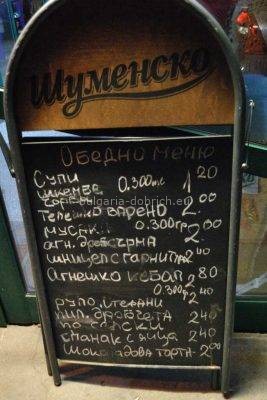 Шуменско
Обедно меню
Супи 0.300мл 1 20
шкембе
bulgaria-dobrich.eu
Телешко варено 2.00
мусака 0.300гр 2.00
агн. дроб сърма
шницел с гарнитура 2.40
Агнешко кебап 2.80
0.300гр
руло стефани 2.40
пил. дробчета
по селски 2.40
спанак с яйца 2.40
Шоколадова торта 2.00